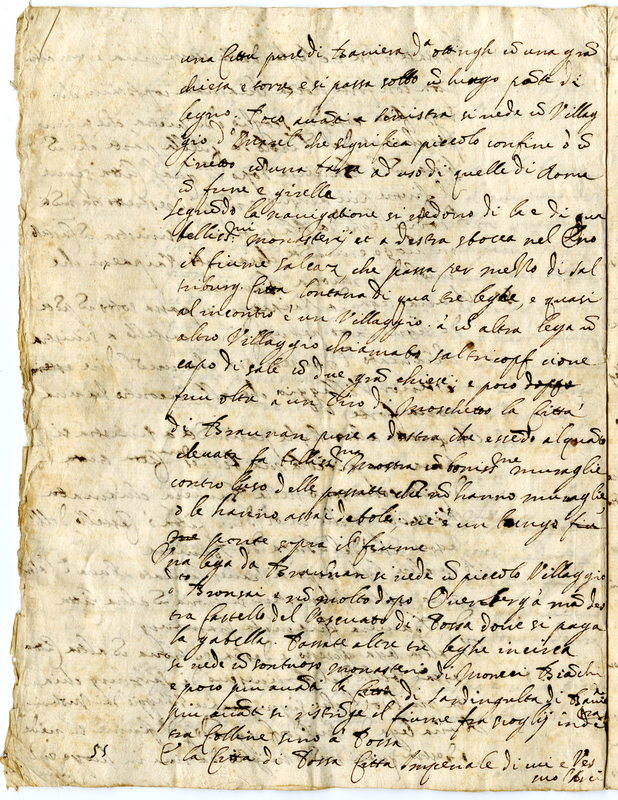 una Città pure di Baviera da ottingh con una gran
chiesa e torre, e si passa sotto un lungo ponte di
legno. Poco avanti a sinistra si vede un Villag
gio d. Marel che significa piccolo confine ò un
con una ad uso di quelle di Roma
con fune e girelle
Seguendo la navigatione si vedono di la e di qua
bellissmi monasterij et a destra sbocca nel Eno
il fiume Salcaz che passa per mezzo di Sal
tzburg Città lontana di qua tre leghe, e quasi
al incontro è un Villaggio. à un altra lega un
altro Villaggio chiamato Saltricopf cioue
capo di sale con due gran chiese; e poco doppo
piu oltre a un tiro di Moschetto la Città
di Braunan pure a destra, che essendo alquanto
elevata fa bellissma mostra con bonissme muraglie
contro l'uso delle passate che non hanno muraglie
o le hanno assai deboli. vi è un lungo fiu
me ponte sopra il fiume
Una lega da Braunan si vede un piccolo Villaggio
do Bronsai e non molto dopo Overnberg à man des
tra Castello del Vescuato di Possa doue si paga
la gabella. Passate altre tre leghe incirca
si vede un sontuoso monasterio di Monaci Bianchi
e poco piu avanti la Città di Sardingulta di Bauie
ra
piu avanti si ristringe il fiume fra scoglij
tra Colline sino à Possa
È la Città di Possa Città Imperiale di cui e Ves
55